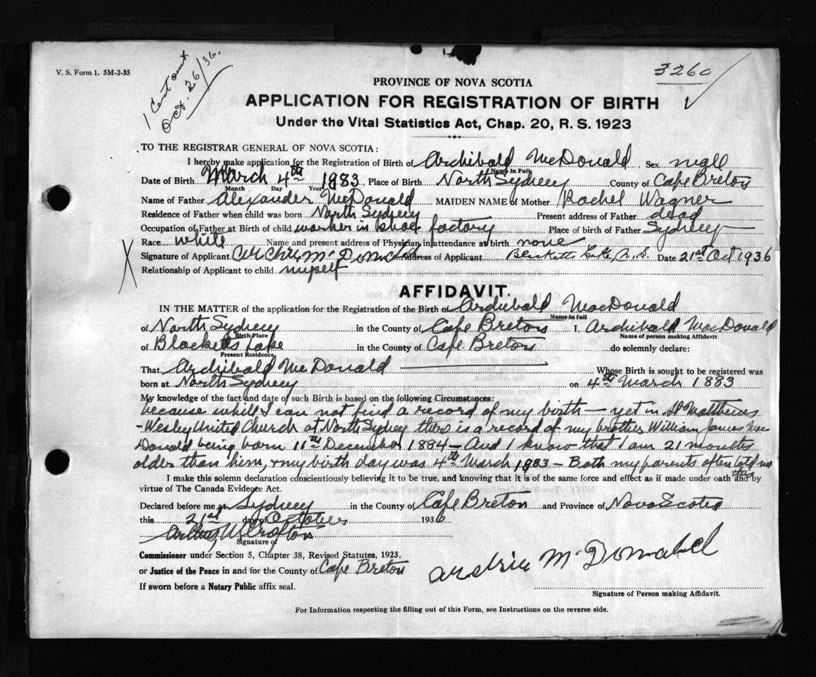 V. S. Form 1. 5M-2-35
Oct. 26/36.
3260
PROVINCE OF NOVA SCOTIA
APPLICATION FOR REGISTRATION OF BIRTH
Under the Vital Statistics Act, Chap. 20, R. S. 1923
TO THE REGISTRAR GENERAL OF NOVA SCOTIA:
I hereby make application for the Registration of Birth of Archibald McDonald Sex male
Name in Full
Date of Birth March 4th 1883 Place of Birth North Sydney County of Cape Breton
Month Day Year
Name of Father Alexander McDonald MAIDEN NAME of Mother Rachel Wagner
Residence of Father when child was born North Sydney Present address of Father dead
Occupation of Father at Birth of child worker in shoe factory Place of birth of Father Sydney
Race white Name and present address of Physician in attendance at birth none
Signature of Applicant Archie McDonald Address of Applicant Blacketts Lake, N.S. Date 21st Oct 1936
Relationship of Applicant to child myself
AFFIDAVIT.
IN THE MATTER of the application for the Registration of the Birth of Archibald MacDonald
Name in full
of North Sydney in the County of Cape Breton I, Archibald MacDonald
Birth Place Name of person making Affidavit
of Blacketts Lake in the County of Cape Breton do solemnly declare:
Present Residence
That Archibald McDonald Whose Birth is sought to be registered was
born at North Sydney on 4th March 1883
My knowledge of the fact and date of such Birth is based on the following Circumstances:
because while I can not find a record of my birth — yet in St Matthews
-Wesley United Church at North Sydney there is a record of my brother William James Mac
Donald being born 11th December 1884 — And I know that I am 21 months
older than him, & my birth day was 4th March 1883 — Both my parents often told me
this
I make this solemn declaration conscientiously believing it to be true, and knowing that it is of the same force and effect as if made under oath and by
virtue of The Canada Evidence Act.
Declared before me at Sydney in the County of Cape Breton and Province of Nova Scotia
this 21st day of October 1936
Signature of
Commissioner under Section 5, Chapter 38, Revised Statutes, 1923,
or Justice of the Peace in and for the County of Cape Breton
Archie McDonald
If sworn before a Notary Public affix seal.
Signature of Person making Affidavit.
For Information respecting the filling out of this Form, see Instructions on the reverse side.